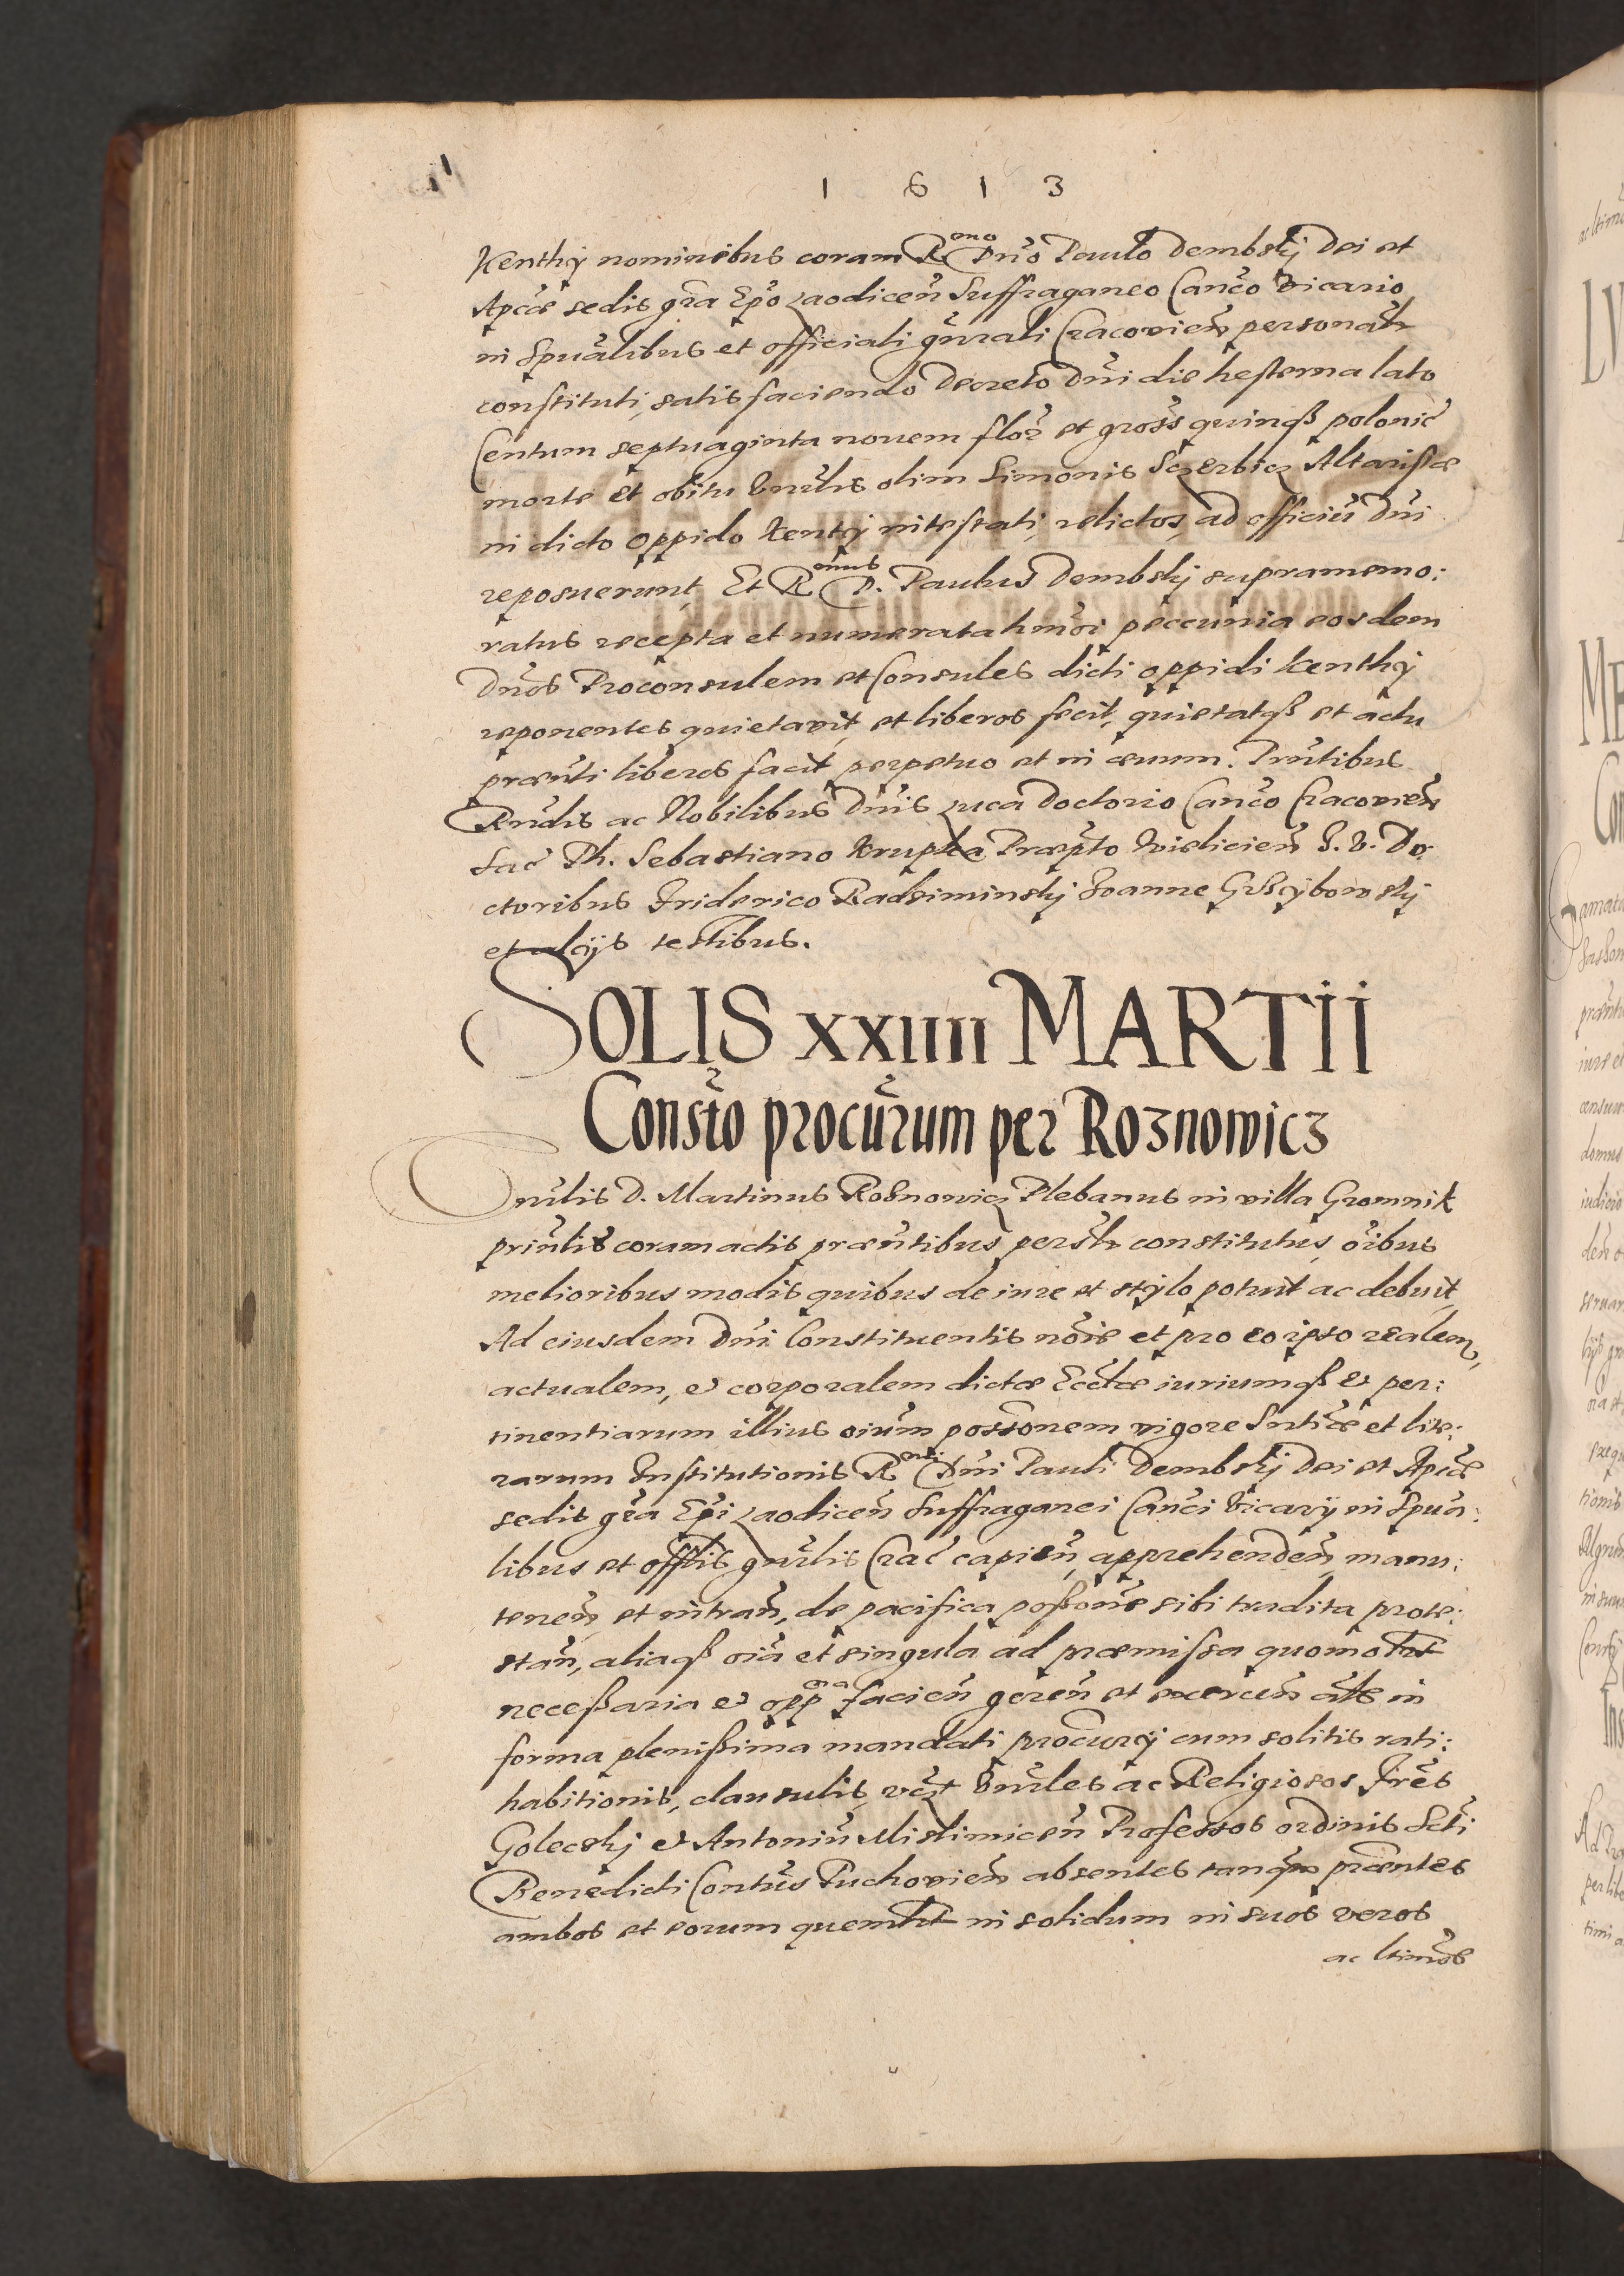 1 6 1 3
Kenthy nominibus coram R<sup>mo</sup> Dño Paulo Dembskj Dei et
Apcæ sedis gřa Epõ Laodiceñ Suffraganeo Cancõ Vicario
in Spũalibus et officiali gñrali Cracovieñ personalr
constituti, satisfaciendo decreto Dñi die hesterna lato
Centum septuaginta novem flor et gross quinqß polonic
morte et obitu Vnrlis olim Simonis Sczerbicz Altaristæ
in dicto oppido Kentÿ intestati, relictos, ad officiũ Dñi
reposuerunt, Et R<sup>mus</sup> D. Paulus Dembskj supramemo:
ratus recepta et numerata hmõi peccunia eosdem
Dños Proconsulem et Consules dicti oppidi Kenthÿ
reponentes quietavit, et liberos fecit, quietatqß et actu
præñti liberos facit perpetuo et in ævum. Prñtibus
Rñdis ac Nobilibus Dñis Luca Doctorio Cancõ Cracovieñ
Sac Th. Sebastiano Krupka Præpto Wislicieñ J. V. Do:
ctoribus Friderico Radziminskj Joanne Grzÿbowskj
et alÿs testibus.
SOLIS XXIIII MARTII
Consťo procũrum per Roznowicz
Vnrlis D. Martinus Roznowicz Plebanus in villa Gromnik
prinlis coram actis præñtibus persłr constitutus, oĩbus
melioribus modis quibus de iure et stÿlo potuit ac debuit,
Ad eiusdem Dñi Constituentis nõie et pro eo ipso realem,
actualem, et corporalem dictæ Eccłæ iuriumqß et per:
tinentiarum illius oiũm possonem vigore Sntiæ et lite:
rarum Institutionis R<sup>mi</sup> Dñi Pauli Dembskj Dei et Apcæ
sedis gřa Epĩ Laodiceñ Suffraganei Canci Vicarÿ in Spua:
libus et offlis gñrlis Crac capieñ, apprehendeñ, manu:
teneñ, et intrañ, de pacifica poßone sibi tradita prote:
stañ, aliaqß oiã et singula ad præmissa quomolbt
neceßaria et opp<sup>na</sup> facieñ gereñ et exerceñ ałs in
forma plenißima mandati procurÿ cum solitis rati:
habitionis, clausulis, vczt Vnrles ac Religiosos Frẽs
Goleckj et Antoniũ Mislimiceñ Professos ordinis Scti
Benedicti Contũs Tuchovieñ absentes tanqm præñtes
ambos et eorum quemlbt in solidum in suos veros
ac ltimõs